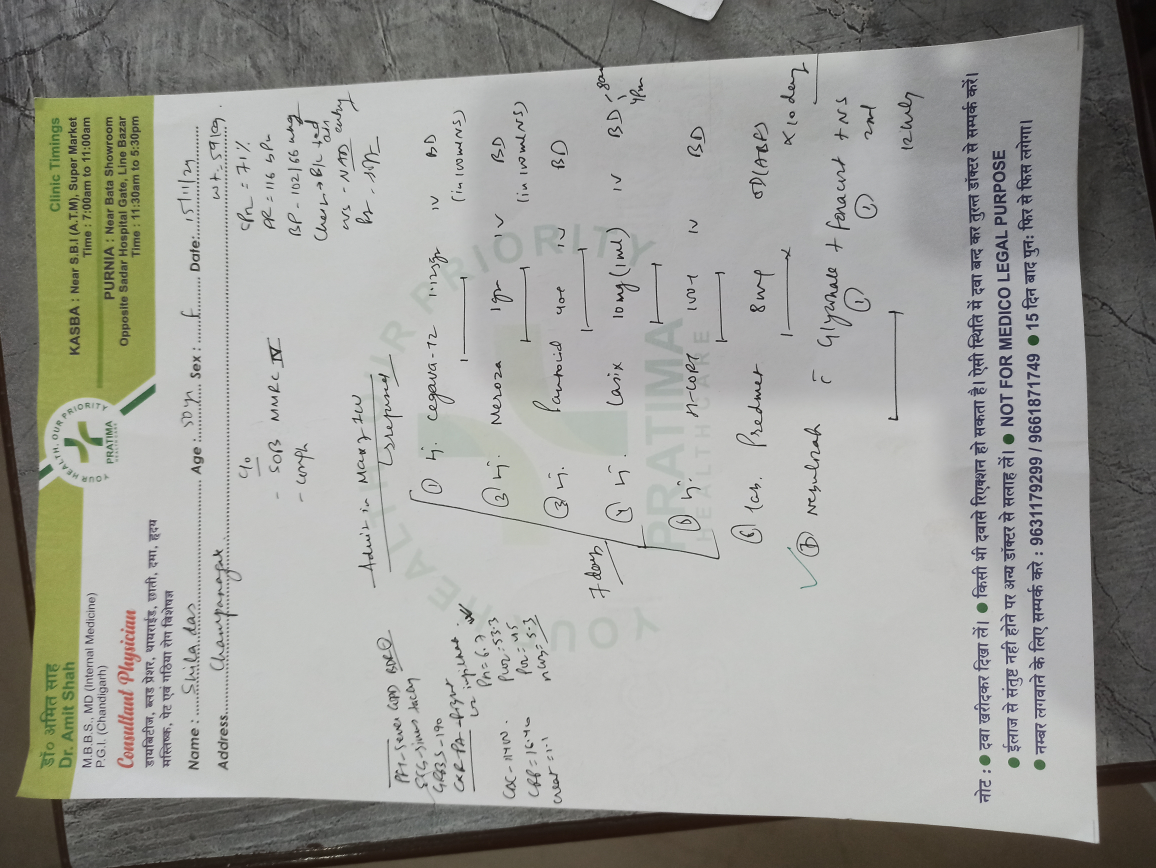 डॉ० अमित साह
Dr. Amit Shah
M.B.B.S., MD (Internal Medicine)
P.G.I. (Chandigarh)
Consultant Physician
डायबिटीज, ब्लड प्रेशर, थायराईड, छाती, दमा, हृदय
मस्तिष्क, पेट एवं गठिया रोग विशेषज्ञ
YOUR HEALTH, OUR PRIORITY
PRATIMA
HEALTHCARE
Clinic Timings
KASBA : Near S.B.I (A.T.M), Super Market
Time : 7:00am to 11:00am
PURNIA : Near Bata Showroom
Opposite Sadar Hospital Gate, Line Bazar
Time : 11:30am to 5:30pm
Name : Shila das Age : 50yr Sex : F Date: 15/11/24
Address Champanagar wt. 59kg
C/o
- SOB MMRC IV
- Cough
SpO2 = 71%
PR = 116 bpm
BP - 102/66 mmHg
Chest → B/L
air entry
CVS - NAD
Admit in Max 7 ICU
refused
ECG - sinus tachy
GRBS - 190
CXR - PA - Right
CRP = 16.40
creat = 1.1
① Inj. Cegava-TZ 1.125gm IV BD
(in 100ml NS)
② Inj. Meroza 1gm IV BD
(in 100ml NS)
③ Inj. Pantoid 40t IV BD
④ Inj. Lasix 10mg (1ml) IV BD - 8am
4pm
⑤ Inj. n-cort 100t IV BD
7 days
⑥ Tab. Predmet 8mg OD (ABF)
x 10 days
⑦ Nebulizah c̄ Glyohale + Foracort + NS
① ① 2ml
12 hrly
YOUR HEALTH, OUR PRIORITY
PRATIMA
HEALTHCARE
नोट : ● दवा खरीदकर दिखा लें। ● किसी भी दवासे रिएक्शन हो सकता है। ऐसी स्थिति में दवा बन्द कर तुरन्त डॉक्टर से सम्पर्क करें।
● ईलाज से संतुष्ट नही होने पर अन्य डॉक्टर से सलाह लें। ● NOT FOR MEDICO LEGAL PURPOSE
● नम्बर लगवाने के लिए सम्पर्क करे : 9631179299 / 9661871749 ● 15 दिन बाद पुन: फिर से फिस लगेगा।